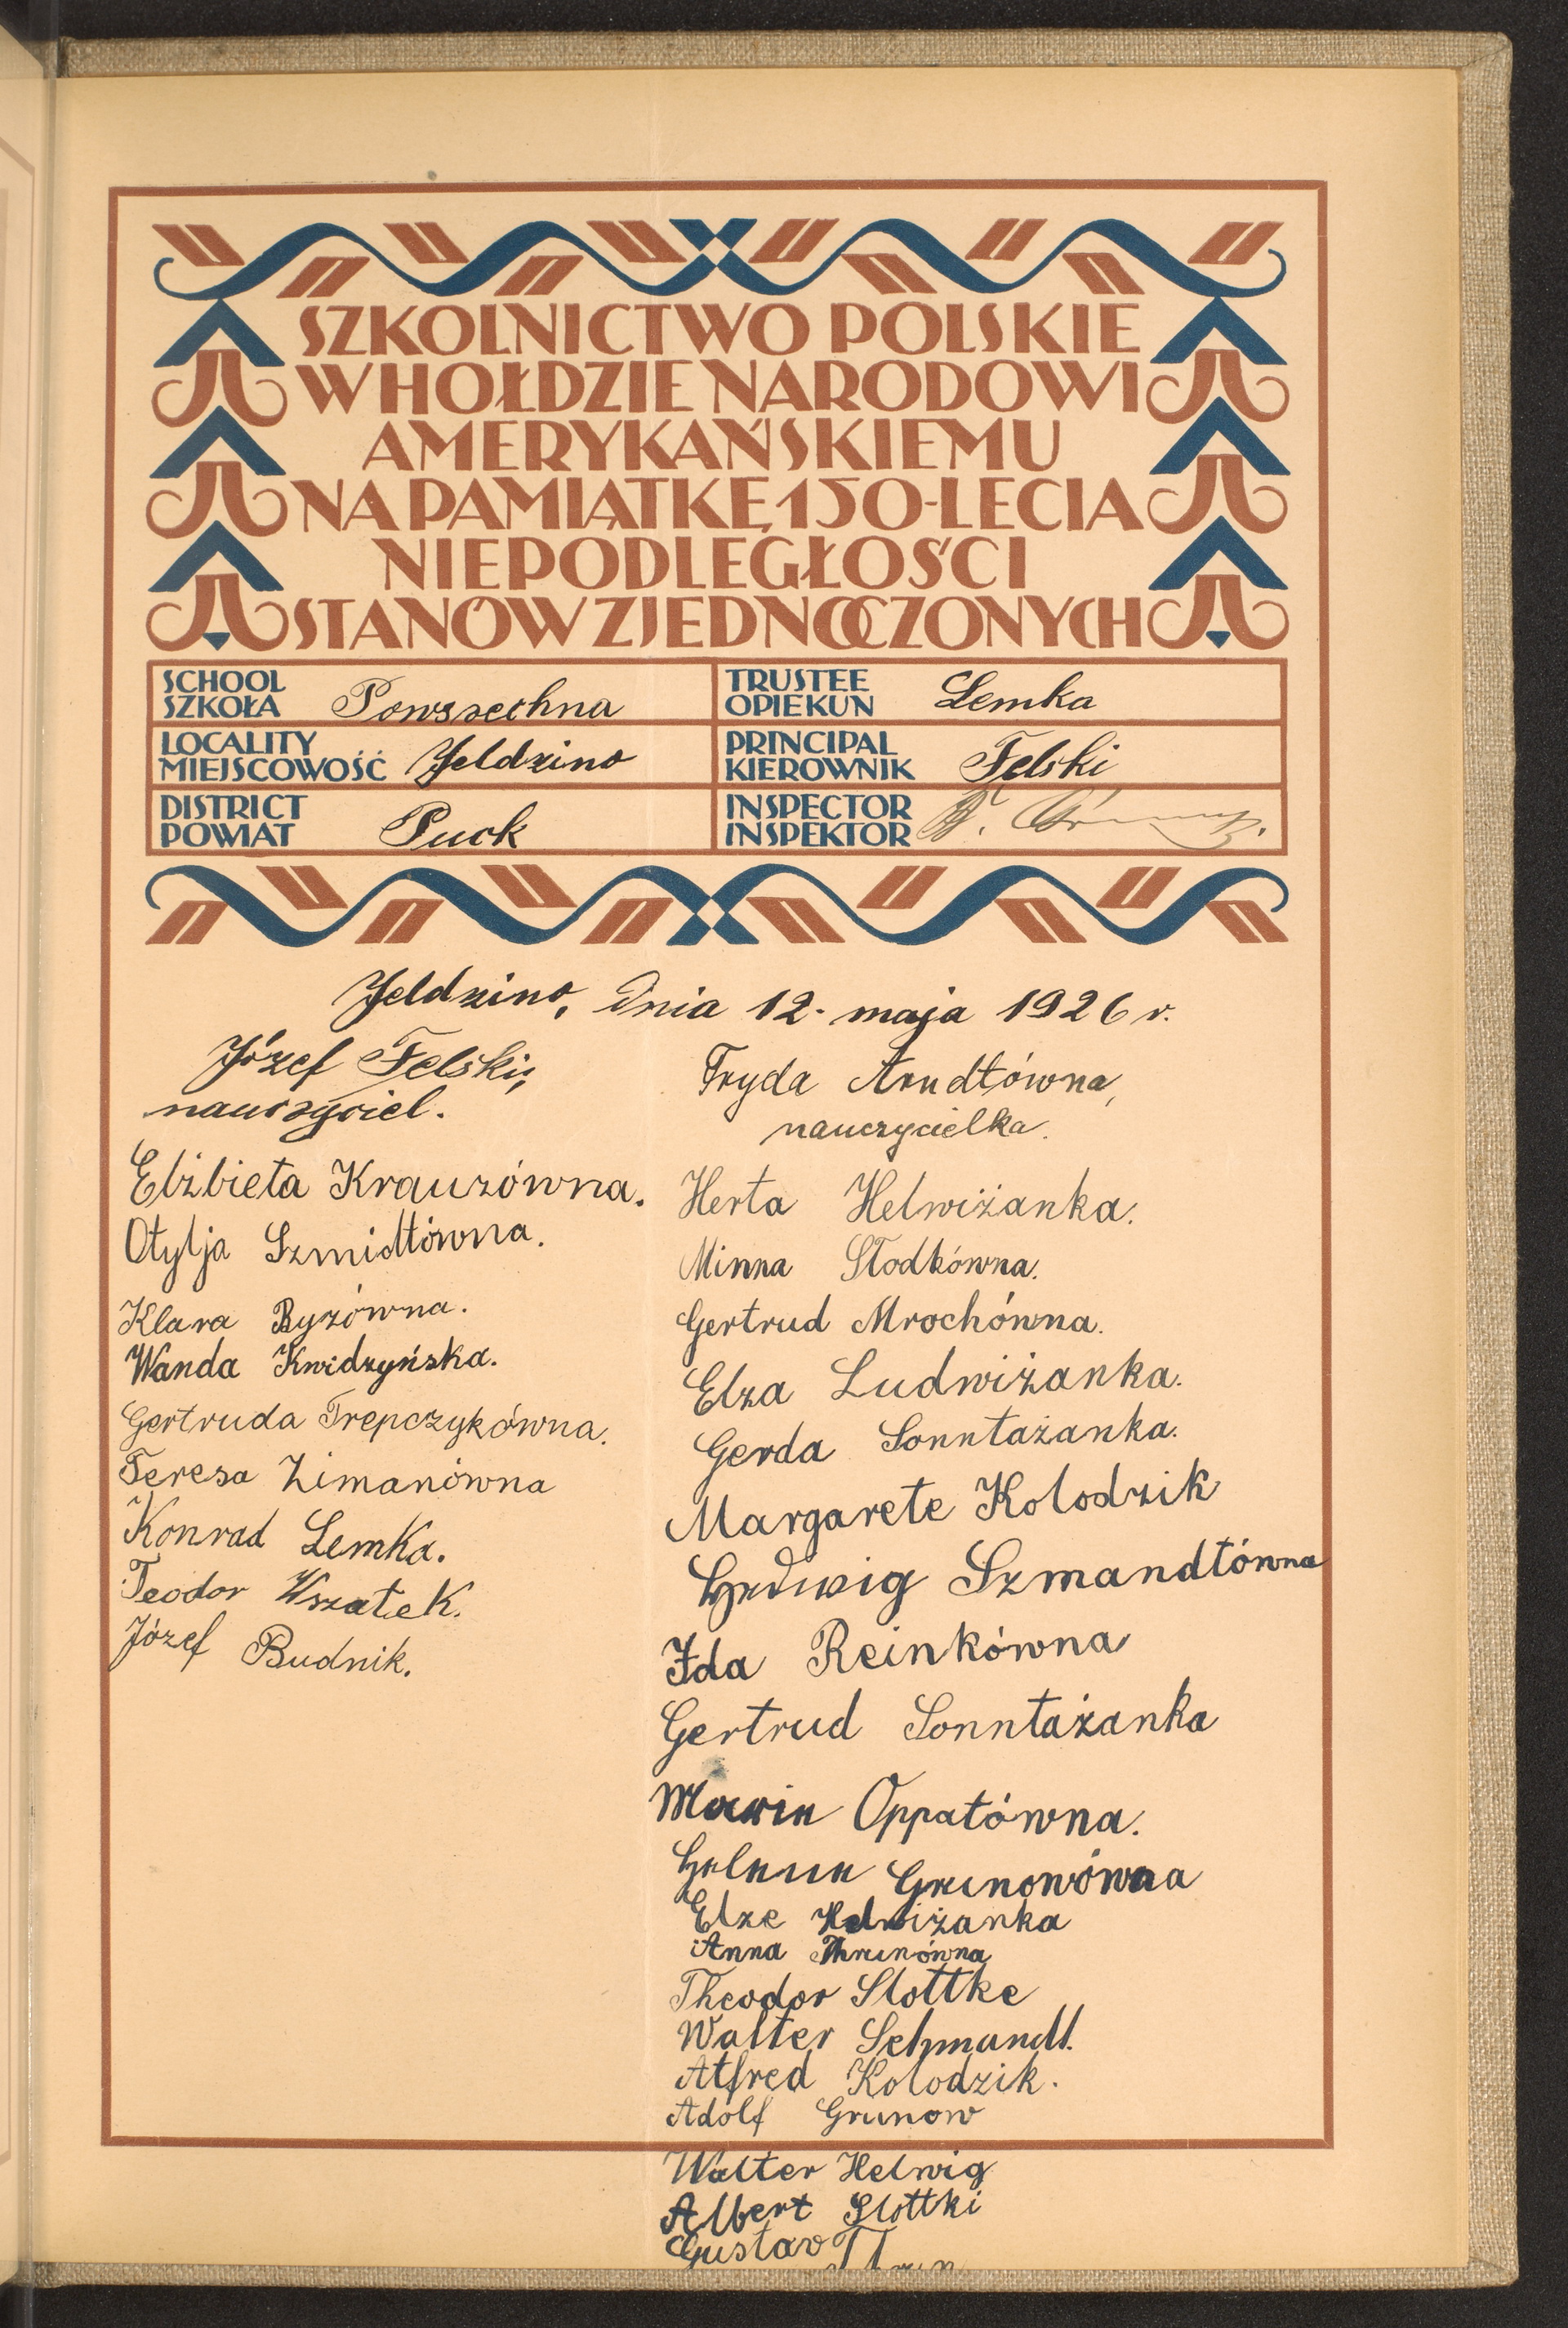 SZKOLNICTWO POLSKIE
W HOŁDZIE NARODOWI
AMERYKAŃSKIEMU
NA PAMIĄTKĘ 150-LECIA
NIEPODLEGŁOŚCI
STANÓW ZJEDNOCZONYCH
SCHOOL
SZKOŁA Powszechna
TRUSTEE
OPIEKUN Lemka
LOCALITY
MIEJSCOWOŚĆ Jeldzino
PRINCIPAL
KIEROWNIK Felski
DISTRICT
POWIAT Puck
INSPECTOR
INSPEKTOR
Jeldzino, dnia 12. maja 1926 r.
Józef Felski,
nauczyciel.
Elżbieta Krauzówna.
Otylja Szmidtówna.
Klara Byzówna.
Wanda Kwidzyńska.
Gertruda Trepczykówna.
Teresa Zimanówna
Konrad Lemka.
Teodor Wszałek.
Józef Budnik.
Fryda Arndtówna,
nauczycielka.
Herta Helwiżanka.
Minna Stodkówna.
Gertrud Mrochówna.
Elza Ludwiżanka.
Gerda Sonntażanka.
Margarete Kolodzik
Hedwig Szmandtówna
Ida Reinkówna
Gertrud Sonntażanka
Marie Oppatówna.
Helene Grunowówna
Elze Helwiżanka
Anna Thrunówna
Theodor Slottke
Walter Schmandt.
Alfred Kolodzik.
Adolf Grunow
Walter Helwig
Albert Slottki
Gustav